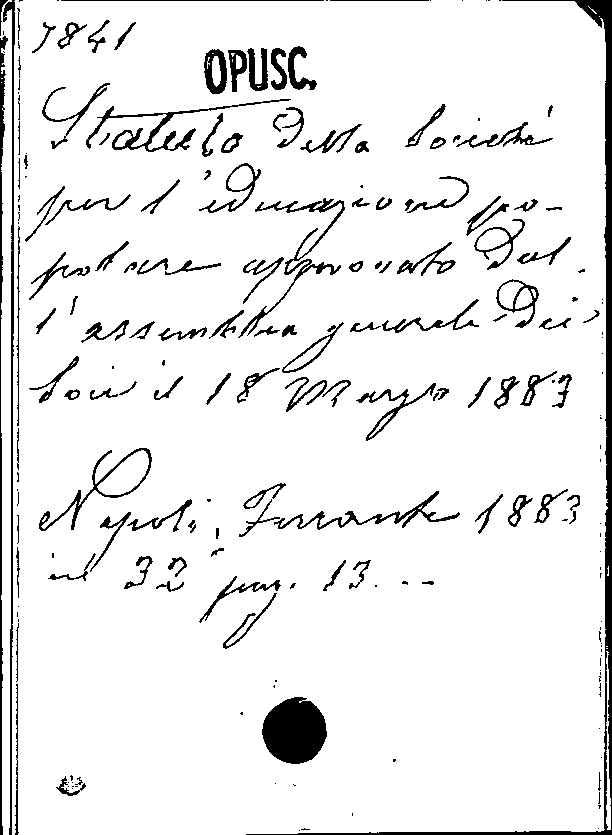 7841
OPUSC.
Statuto della Società
per l'educazione po-
polare approvato dal-
l'assemblea generale dei
Soci il 18 Marzo 1883
Napoli, Ferrante 1883
in 32° pag. 13. --